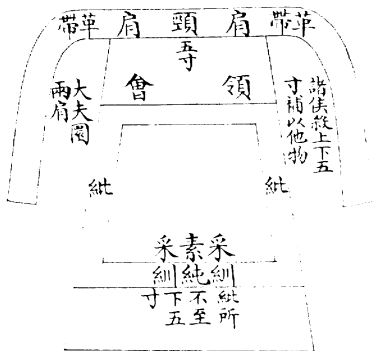 革帶 肩 頸 肩 革帶
五寸
領會
諸侯殺上下五
寸補以他物
大夫圜
兩肩
紕 紕
采素采
紃純紃
紕所
不至
下五
寸